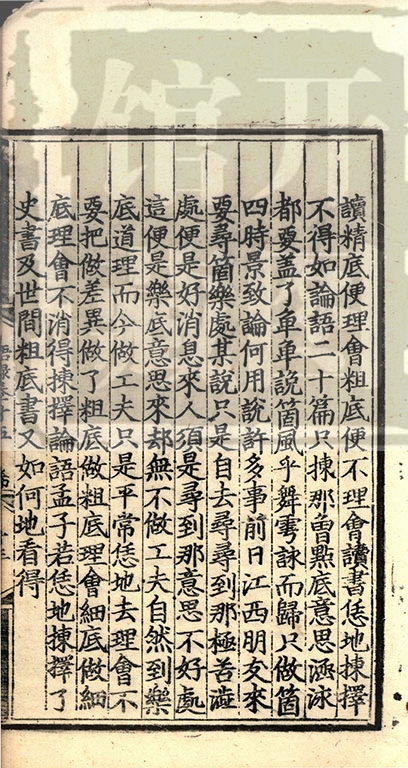 讀精底便理會粗底便不理會讀書恁地揀擇
不得如論語二十篇只揀那曾㸃底意思涵泳
都要盖了單單說箇風乎舞雩詠而歸只做箇
四時景致論何用說許多事前日江西朋友來
要尋箇樂處某說只是自去尋尋到那極苦澁
處便是好消息來人須是尋到那意思不好處
這便是樂底意思來却無不做工夫自然到樂
底道理而今做工夫只是平常恁地去理會不
要把做差異做了粗底做粗底理會細底做細
底理會不消得揀擇論語孟子若恁地揀擇了
史書及世間粗底書又如何地看得
語錄卷十五